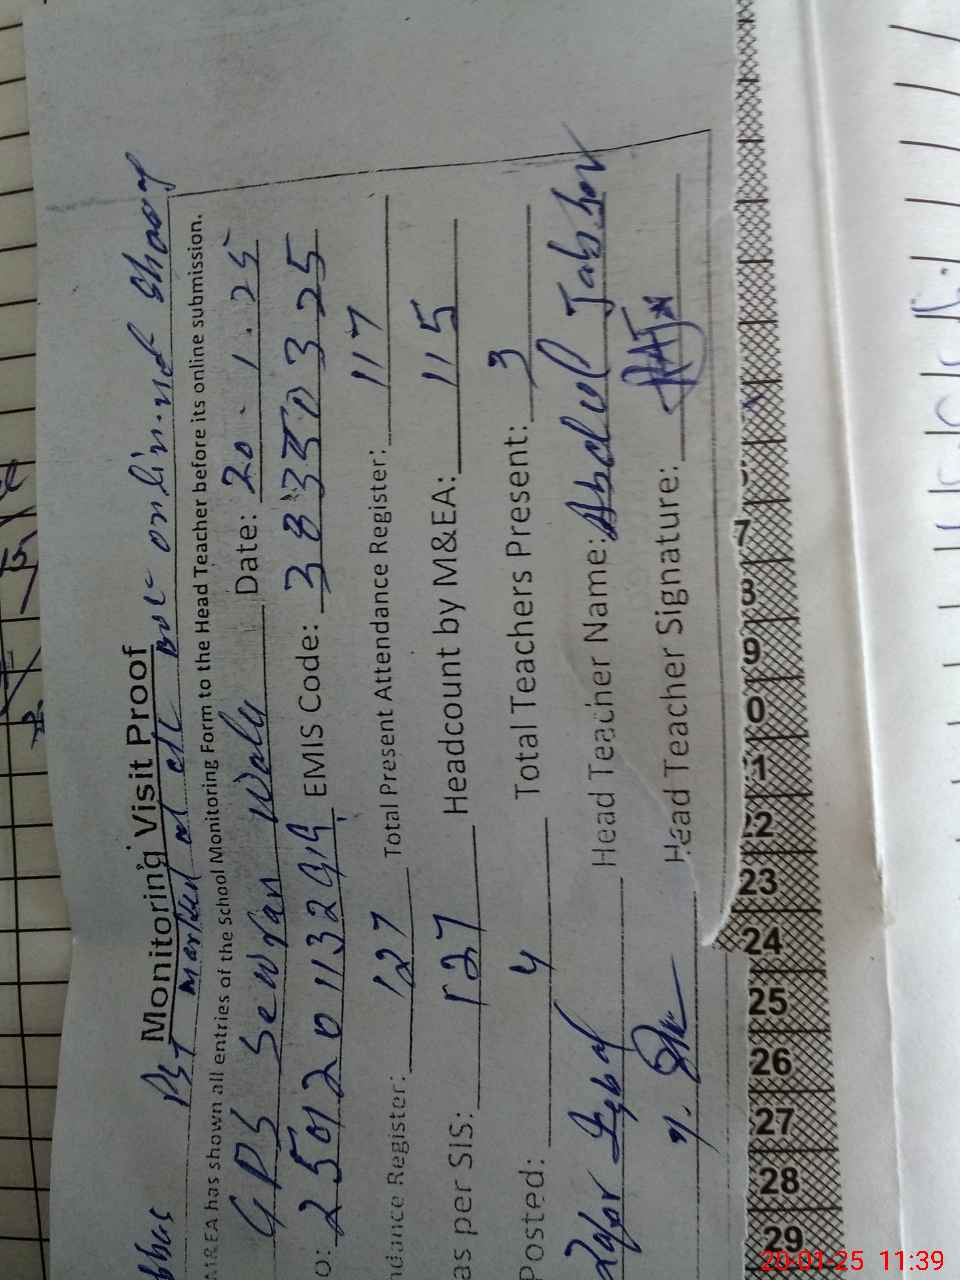 Monitoring Visit Proof
PST marked at
MREA has shown all entries of the School Monitoring Form to the Head Teacher before its online submission.
GPS Sewran Wala Date: 20.1.25
o: 25012011329 EMIS Code: 38350325
ndance Register: 127 Total Present Attendance Register: 117
as per SIS: 127 Headcount by M&EA: 115
Posted: 4 Total Teachers Present: 3
Zafar Iqbal Head Teacher Name: Abdul Jabbar
Head Teacher Signature:
7
8
9
0
1
22
23
24
25
26
27
28
29
20-01-25 11:39